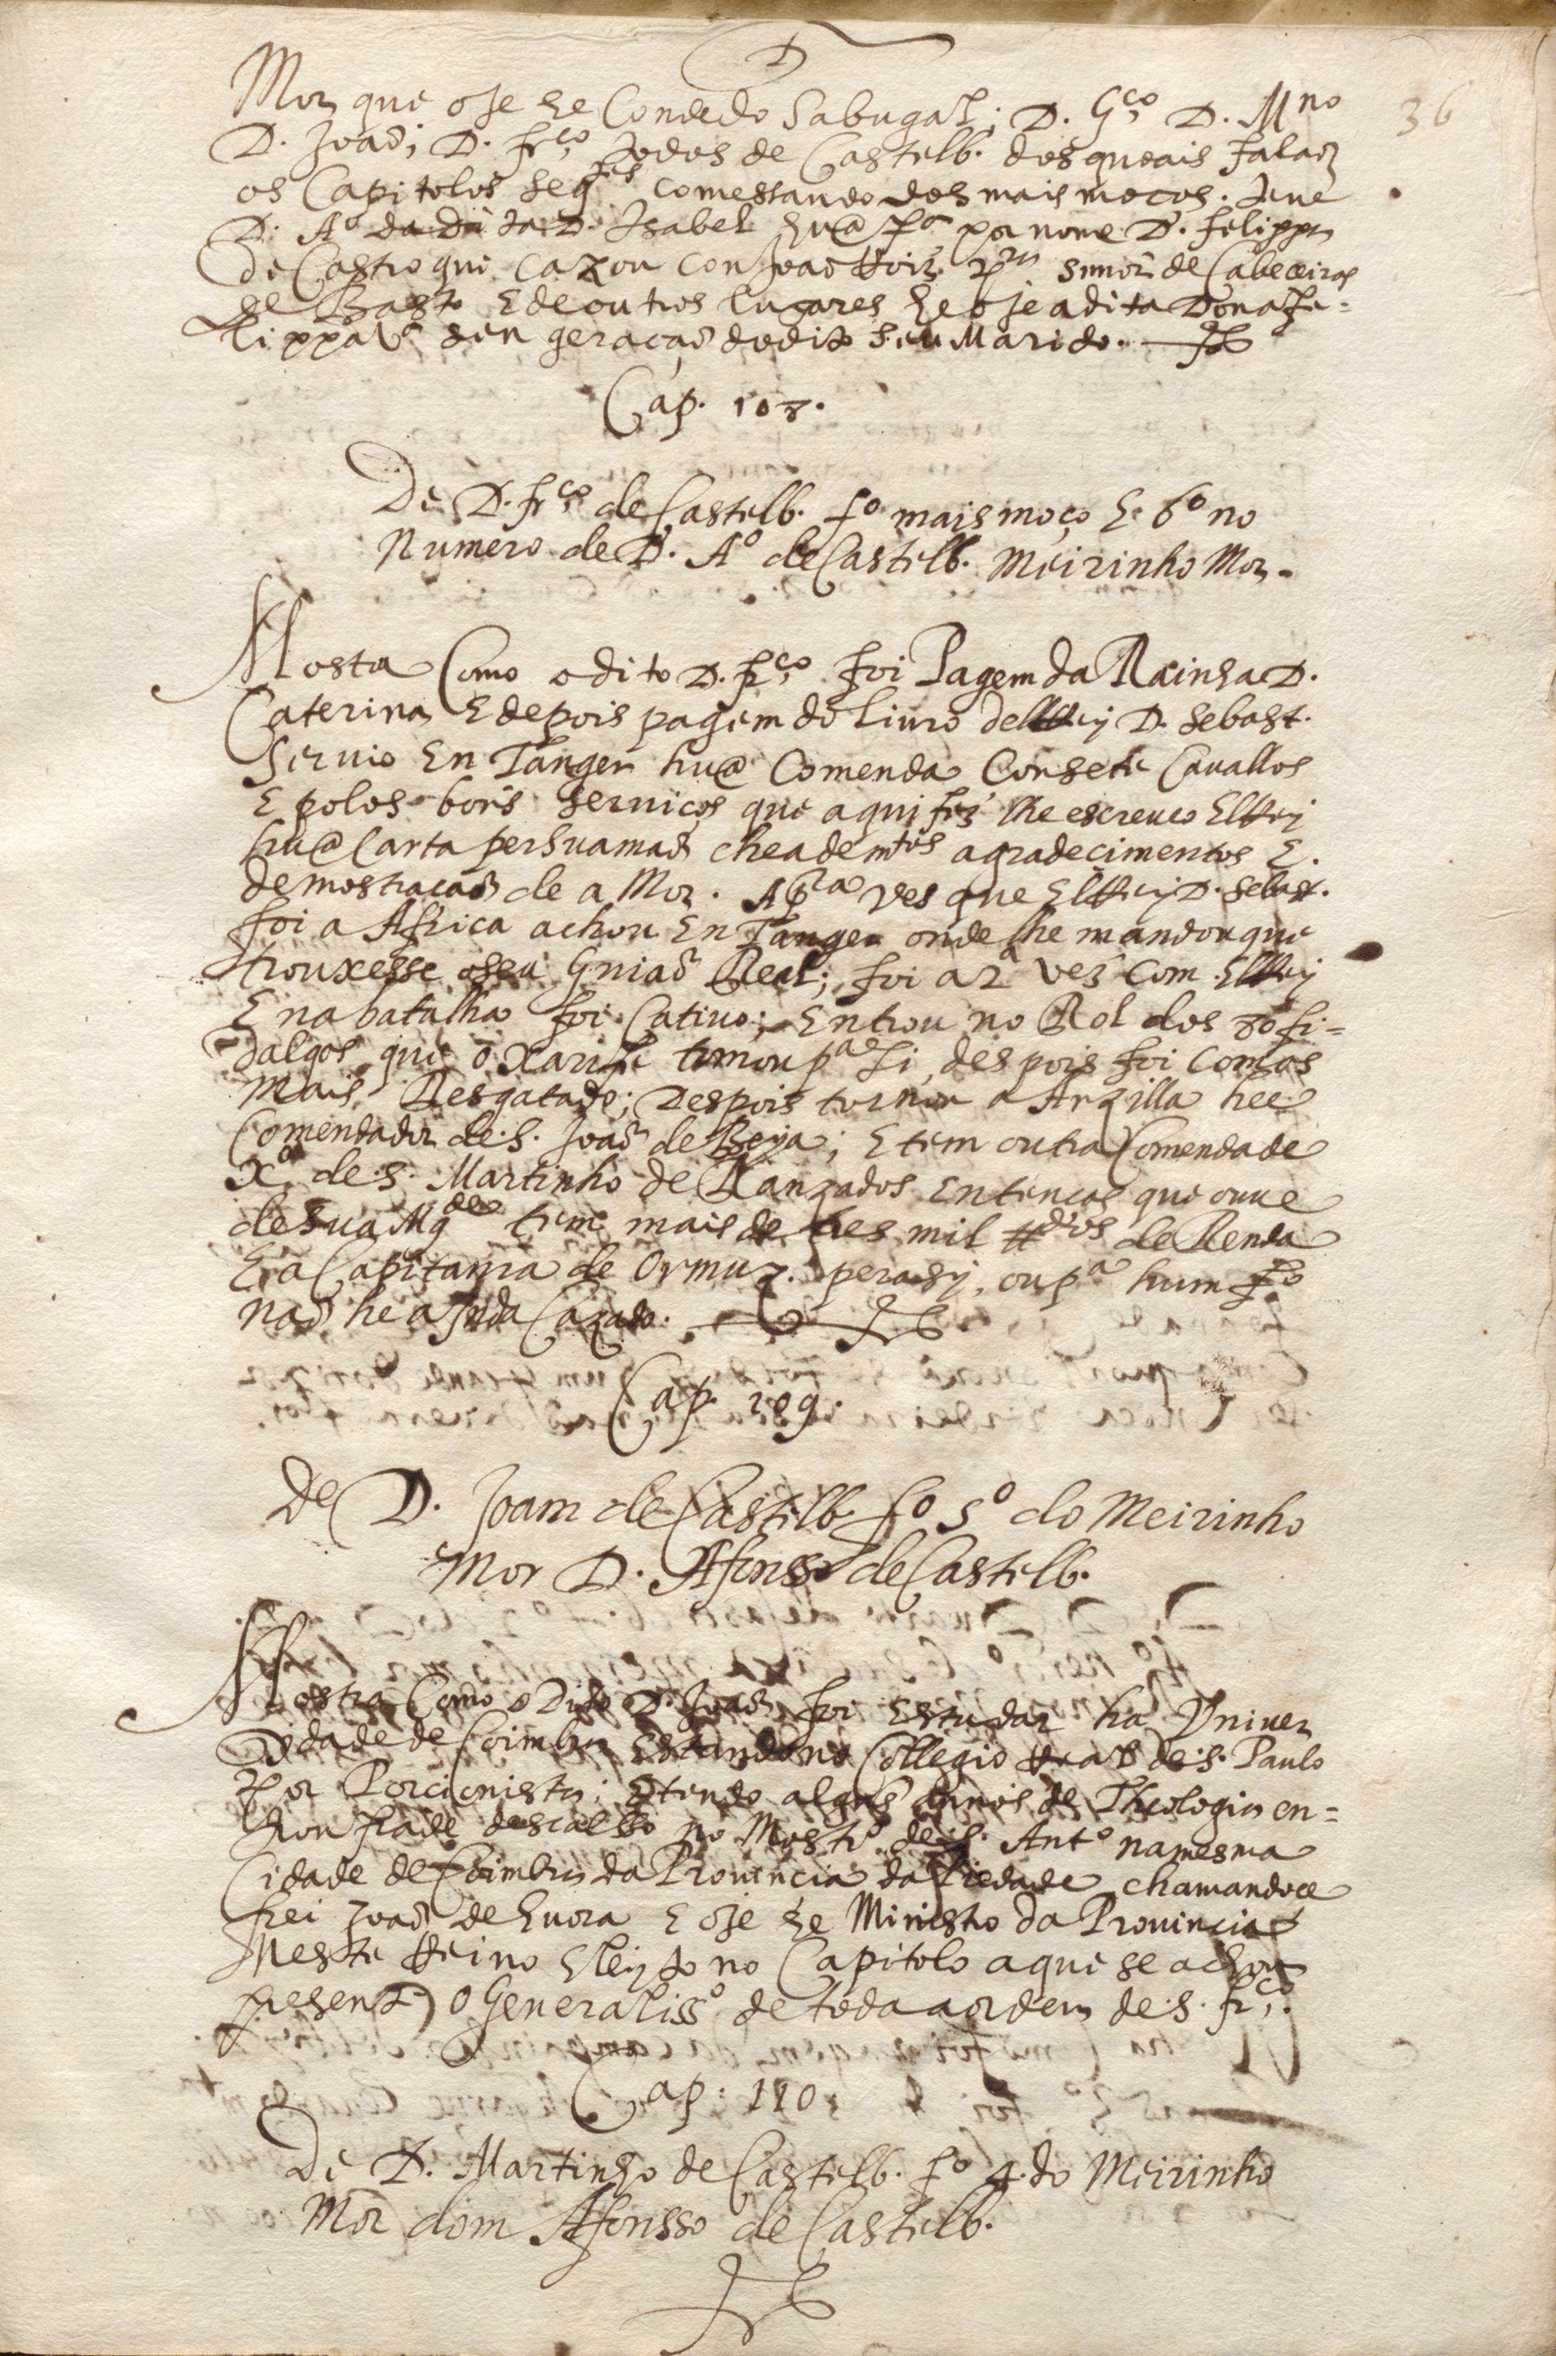 D
36
Mor que oje he Conde do Sabugal; D. Gco D. Mno
D. Joaõ; D. frco todos de Castelb. dos queais falaõ
os Capitolos segtes comessando dos mais mocos. Teve
D. Ao da dita D. Isabel hu@ fa por nome D. Felippa
de Castro que cazou con Joaõ Roiz pra snnor de Cabeceiras
de Basto E de outros lugares he oje a dita Dona Fe=
lippa va sen geracaõ do dito seu Marido.
Cap. 108.
De D. frco de Castelb. fo mais moço he 6o no
Numero de D. Ao de Castelb. Meirinho Mor.
Mosta Como o dito D. frco foi Pagem da Rainha D.
Caterina E depois pagem do Livro del Rey D. Sebast.
Servio En Tanger hu@ Comenda Con sete Cavallos
E polos bons serviços que aqui fez lhe escreveo El Rey
hu@ Carta per sua maõ chea de mtos agradecimentos E.
demostracaõ de a Mor. A pra ves que El Rey D. Sebast.
foi a Africa achou En Tanger onde lhe mandou que
trouxesse o seu Guiaõ Real; foi a 2a vez com El Rey
E na batalha foi Cativo; Entrou no Rol dos 80 fi=
dalgos que o Xarife tomou pa si, despois foi com os
Mais Resgatado; Despois tornou a Arzilla hee
Comendador de S. Joaõ de Beja; E tem outra Comenda de
Xo de S. Martinho de Ranzados En tencas que ouve
de Sua Mgde tem mais de tres mil #dos de Renda
E a Capitania de Ormuz. pera sy, ou pa hum fo
naõ he ajnda Cazado.
Cap. 109.
De D. Joam de Castelb. fo 5o do Meirinho
Mor D. Afonsso de Castelb.
Mostra Como o Dito D. Joaõ foi Estudar ha Vniver
Sidade de Coimbra Estando no Collegio Real de S. Paulo
Por Porcionista; E tendo alguñs annos de Theologia en=
trou frade descalsso no Mostro de S. Anto na mesma
Cidade de Coimbra da Provincia da Piedade chamandoce
frei Joaõ de Evora E oje he Ministro da Provincia
Neste Reino Eleyto no Capitolo a que se achou
presente o Generalisso de toda a ordem de S. frco.
Cap. 110
De D. Martinho de Castelb. fo 4. do Meirinho
Mor dom Afonsso de Castelb.